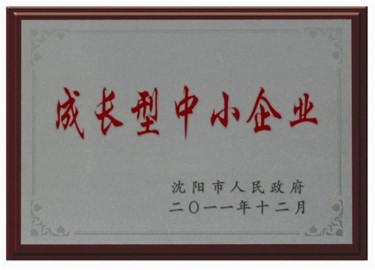 成长型中小企业
沈阳市人民政府
二〇一一年十二月